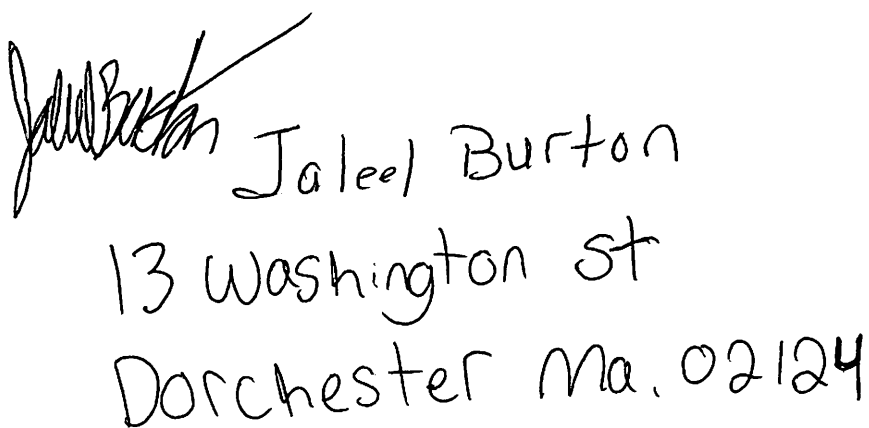 Jaleel Burton
Jaleel Burton
13 Washington St
Dorchester Ma. 02124